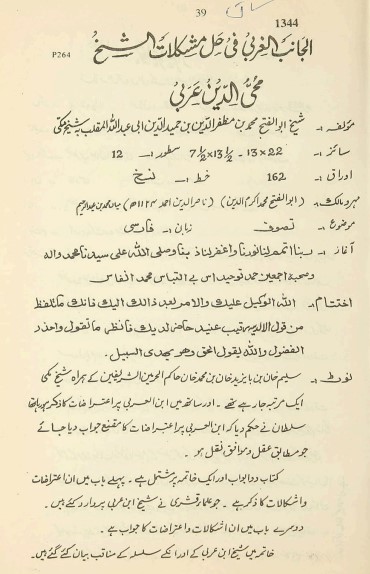 39
1344
P264
الجانب الغربی فی حل مشکلات الشیخ
محی الدین عربی
مؤلفہ :۔ شیخ ابوالفتح محمد بن مظفرالدین بن حمیدالدین ابی عبداللہ الملقب بہ شیخ مکی
سائز :۔ 22×13 - 13½×7½ سطور :۔ 12
اوراق :۔ 162 خط :۔ نسخ
مہر و مالک :۔ (ابوالفتح محمد اکرم الدین) (ناصرالدین احمد 1124ھ)
موضوع :۔ تصوف زبان :۔ فارسی
آغاز :۔ ربنا اتمم لنا نورنا واغفرلنا ذنوبنا وصلی اللہ علی سیدنا محمد والہ
وصحبہ اجمعین حمد توحید اس بے التباس محمد انفاس
اختتام :۔ اللہ الوکیل علیک والامر بعد ذالک الیک فانک ما تلفظ
من قول الا لدیہ رقیب عتید حاضر لدیک فانظر ما تقول واحذر
الفضول واللہ یقول الحق وھو یھدی السبیل۔
نوٹ :۔ سلیم خان بن بایزید خان بن محمد خان حاکم الحرمین الشریفین کے ہمراہ شیخ مکی
ایک مرتبہ جارہے تھے۔ اور ساتھ میں ابن العربی پر اعتراضات کا ذکر ہورہا تھا
سلطان نے حکم دیا کہ ابن العربی پر اعتراضات کا مقنع جواب دیا جائے
جو مطابق عقل و موافق نقل ہو۔
کتاب دو ابواب اور ایک خاتمہ پر مشتمل ہے۔ پہلے باب میں ان اعتراضات
واشکالات کا ذکر ہے۔ جو علمار قشری نے شیخ ابن عربی پر وارد کئے ہیں۔
دوسرے باب میں ان اشکالات واعتراضات کا جواب ہے۔
خاتمہ میں شیخ ابن عربی کے اور انکے سلسلہ کے مناقب بیان کئے گئے ہیں۔